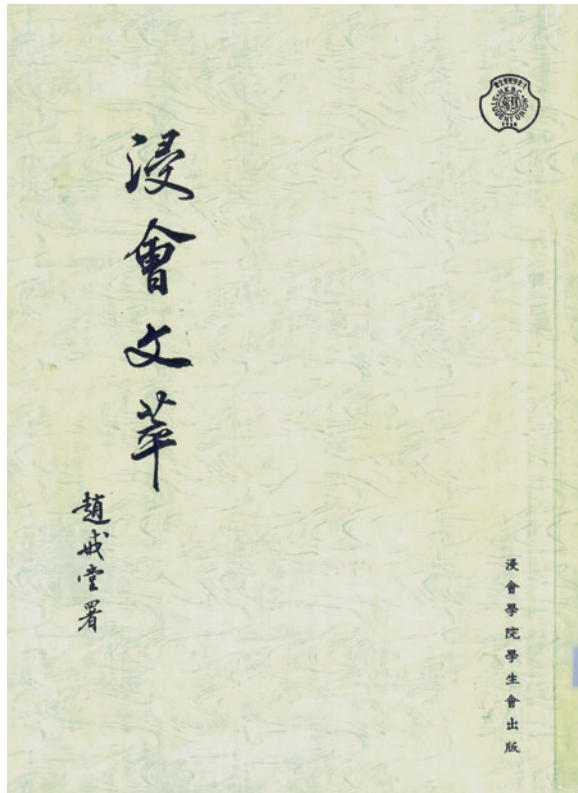 浸會文萃
趙戒堂署
浸會學院學生會出版